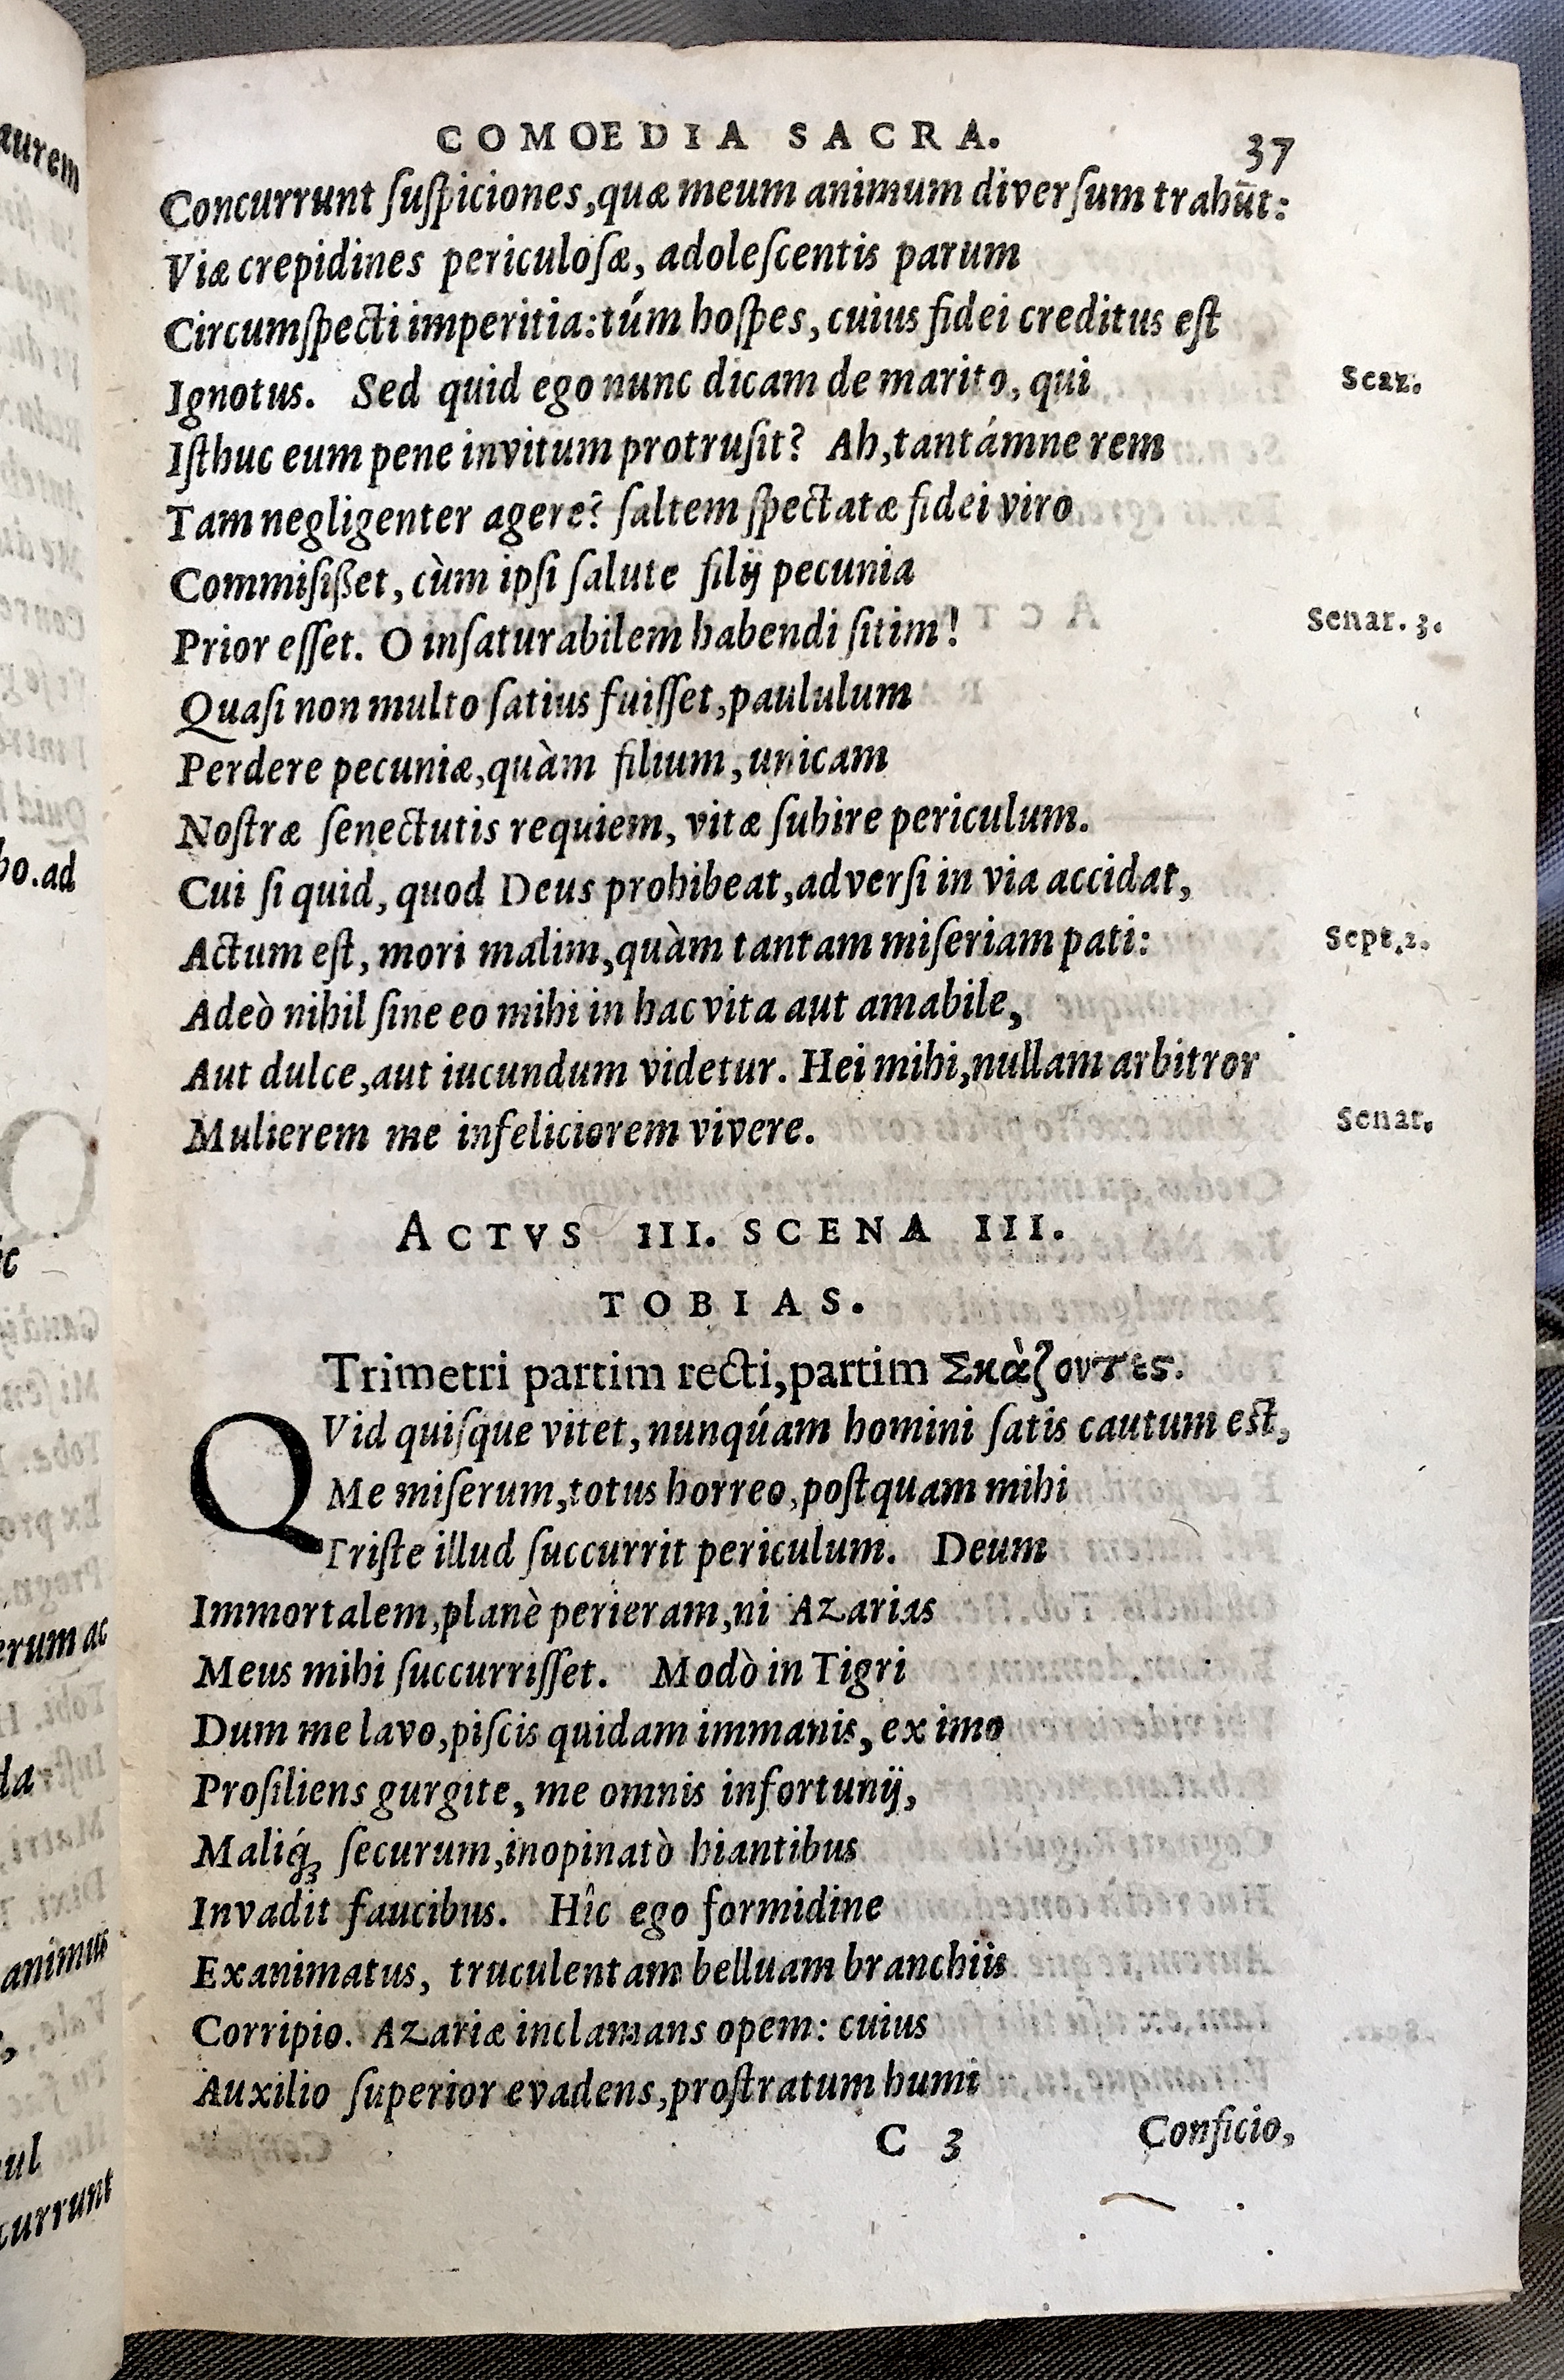 COMOEDIA SACRA. 37
Concurrunt ſuſpiciones, quæ meum animum diverſum trahūt:
Viæ crepidines periculoſæ, adoleſcentis parum
Circumſpecti imperitia: túm hoſpes, cuius fidei creditus eſt
Ignotus. Sed quid ego nunc dicam de marito, qui Scaz.
Iſthuc eum pene invitum protruſit? Ah, tantámne rem
Tam negligenter agere? ſaltem ſpectatæ fidei viro
Commiſißet, cùm ipſi ſalute filij pecunia
Prior eſſet. O inſaturabilem habendi ſitim! Senar. 3.
Quaſi non multo ſatius fuiſſet, paululum
Perdere pecuniæ, quàm filium, unicam
Noſtræ ſenectutis requiem, vitæ ſubire periculum.
Cui ſi quid, quod Deus prohibeat, adverſi in via accidat,
Actum eſt, mori malim, quàm tantam miſeriam pati: Sept. 2.
Adeò nihil ſine eo mihi in hac vita aut amabile,
Aut dulce, aut iucundum videtur. Hei mihi, nullam arbitror
Mulierem me infeliciorem vivere. Senar.
ACTVS III. SCENA III.
TOBIAS.
Trimetri partim recti, partim Σκὰζοντες.
QVid quiſque vitet, nunquám homini ſatis cautum eſt,
Me miſerum, totus horreo, poſtquam mihi
Triſte illud ſuccurrit periculum. Deum
Immortalem, planè perieram, ni Azarias
Meus mihi ſuccurriſſet. Modò in Tigri
Dum me lavo, piſcis quidam immanis, ex imo
Proſiliens gurgite, me omnis infortunij,
Maliq́ꝫ ſecurum, inopinatò hiantibus
Invadit faucibus. Hîc ego formidine
Exanimatus, truculentam belluam branchiis
Corripio. Azariæ inclamans opem: cuius
Auxilio ſuperior evadens, proſtratum humi
C 3 Conficio,